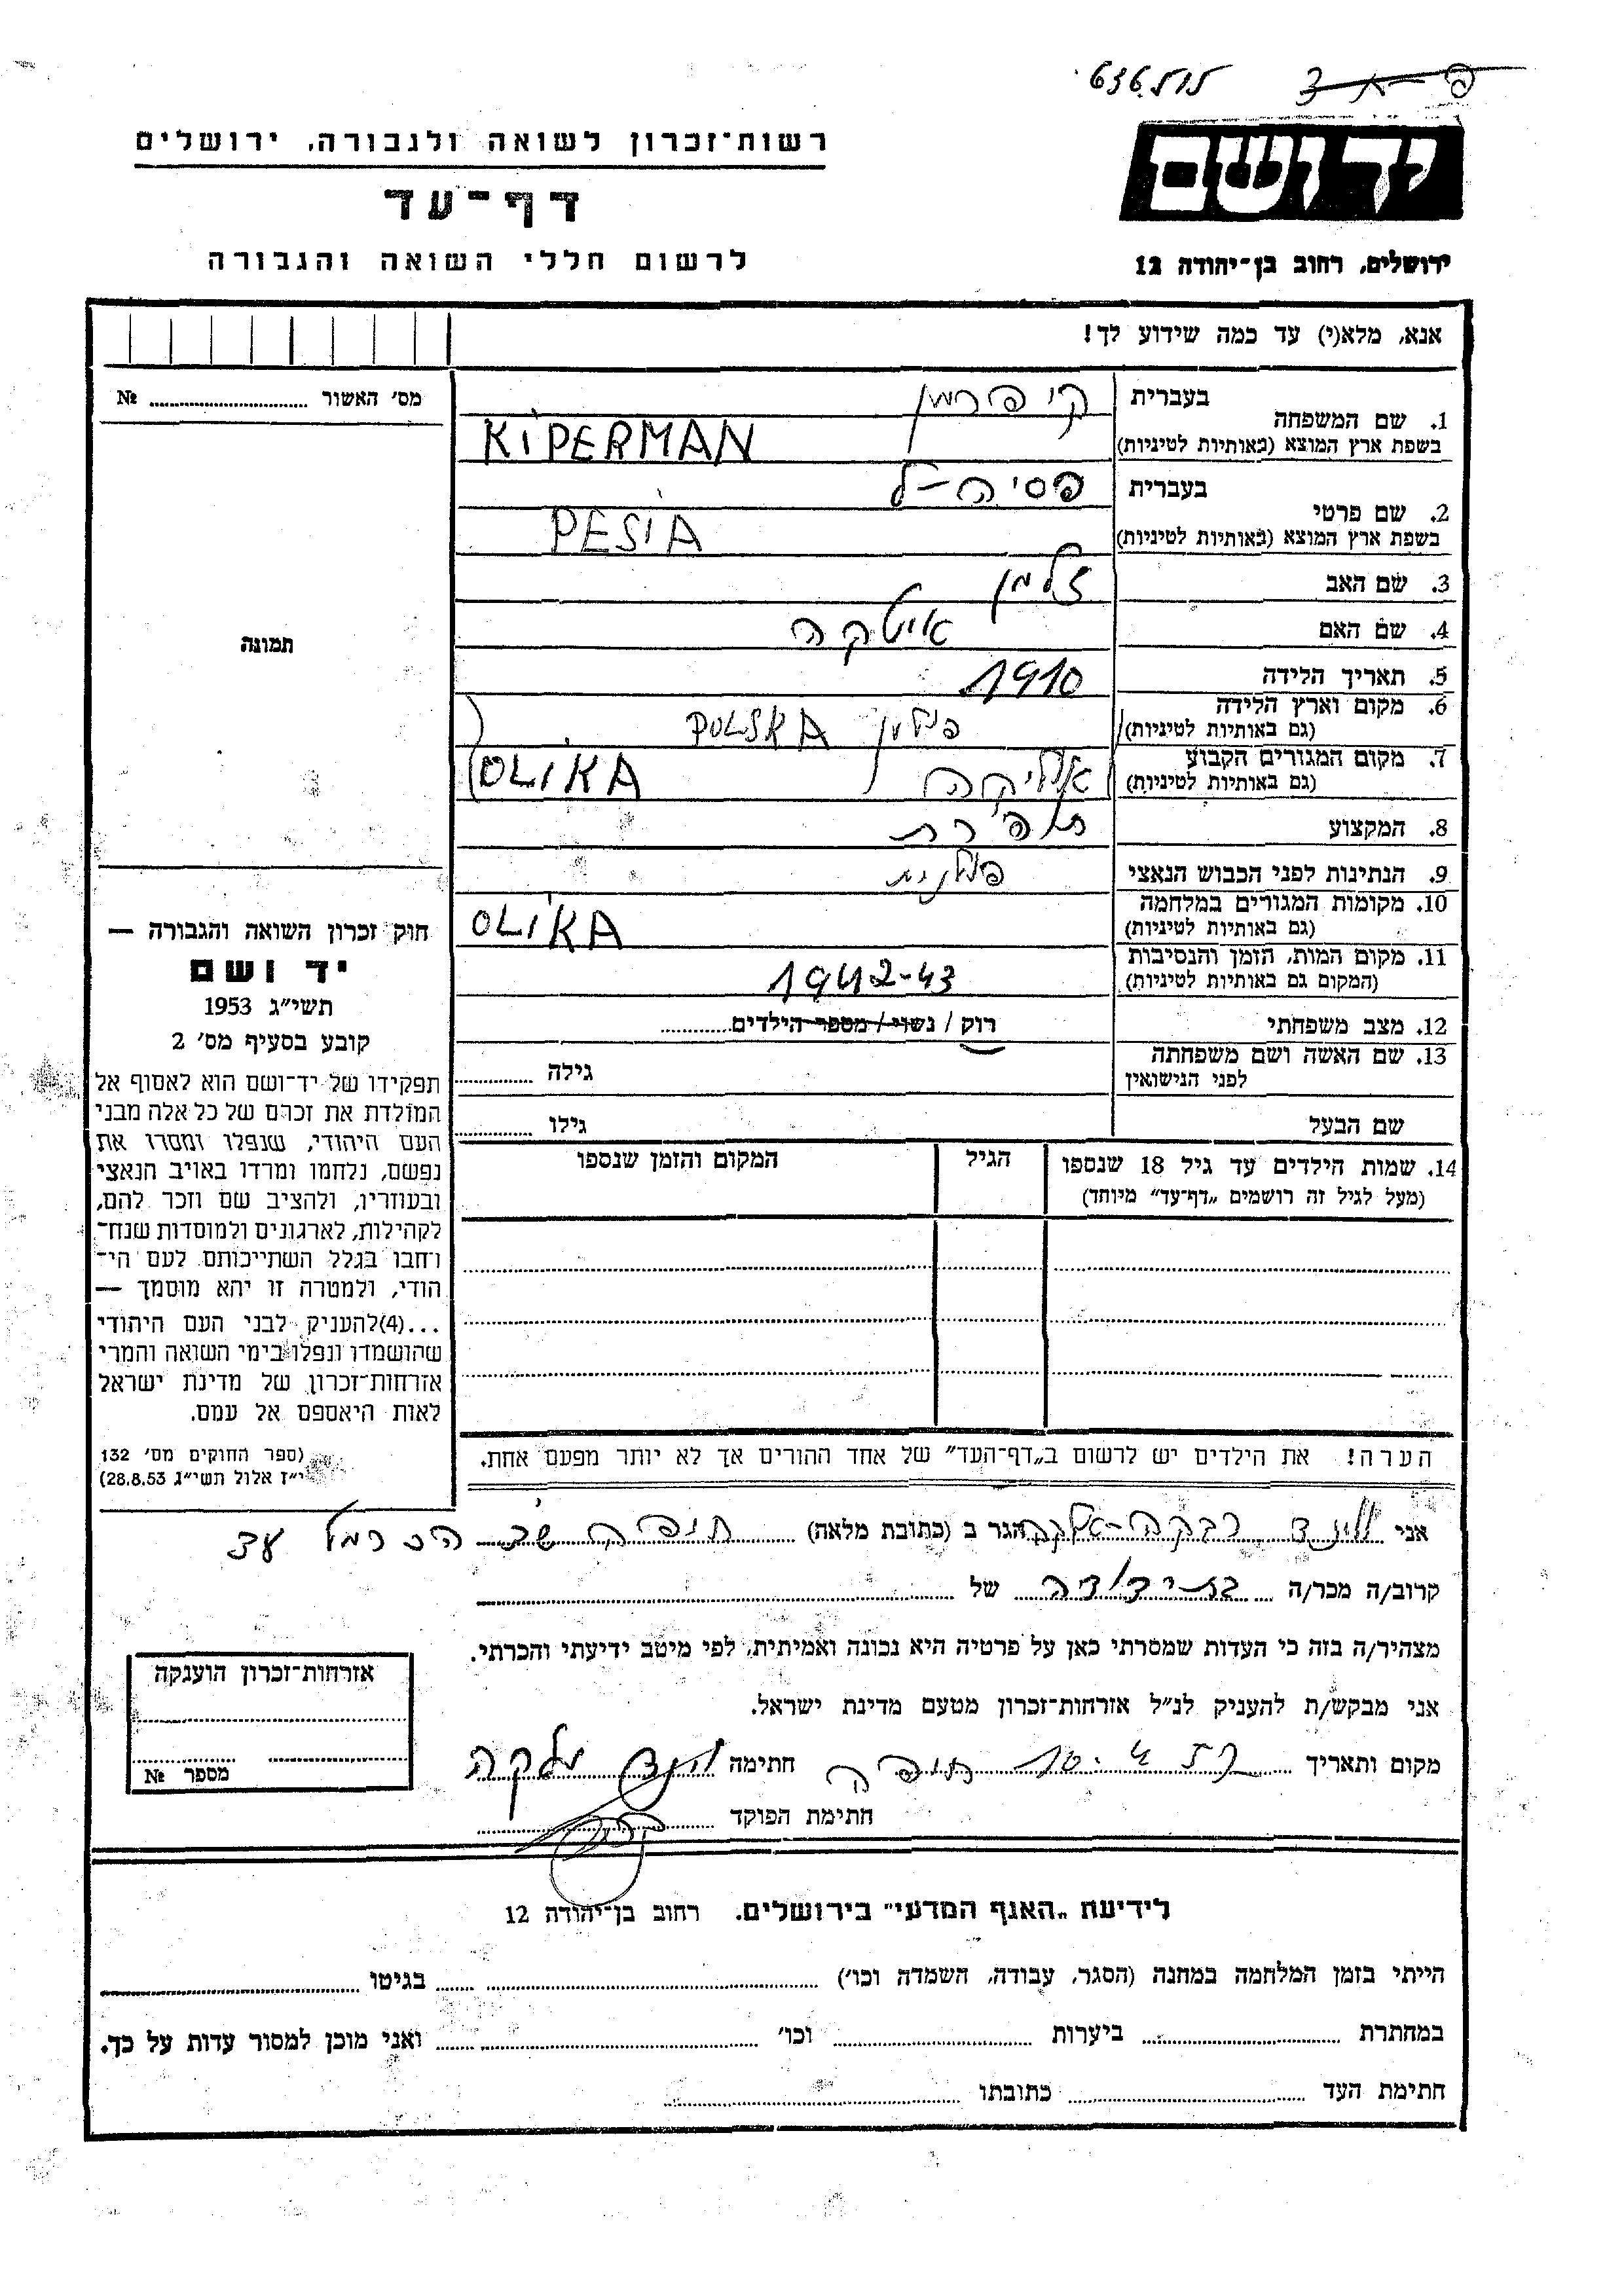 רשות־זכרון לשואה ולגבורה, ירושלים
דף־עד
לרשום חללי השואה והגבורה
יד ושם
ירושלים, רחוב בן־יהודה 12
אנא, מלא(י) עד כמה שידוע לך!
מס׳ האשור № ........
תמונה
1. שם המשפחה בעברית קיפרמן
בשפת ארץ המוצא (באותיות לטיניות) KIPERMAN
2. שם פרטי בעברית פסיה-ל
בשפת ארץ המוצא (באותיות לטיניות) PESIA
3. שם האב זלמן
4. שם האם איטקה
5. תאריך הלידה 1910
6. מקום וארץ הלידה (גם באותיות לטיניות) פולין POLSKA
7. מקום המגורים הקבוע (גם באותיות לטיניות) אוליקה OLIKA
8. המקצוע תופרת
9. הנתינות לפני הכבוש הנאצי פולנית
10. מקומות המגורים במלחמה (גם באותיות לטיניות) OLIKA
11. מקום המות, הזמן והנסיבות (המקום גם באותיות לטיניות) 1942-43
12. מצב משפחתי רוק / נשוי / מספר הילדים........
13. שם האשה ושם משפחתה לפני הנישואין גילה ........
שם הבעל גילו ........
14. שמות הילדים עד גיל 18 שנספו
(מעל לגיל זה רושמים „דף־עד״ מיוחד)
הגיל
המקום והזמן שנספו
חוק זכרון השואה והגבורה —
יד ושם
תשי״ג 1953
קובע בסעיף מס׳ 2
תפקידו של יד־ושם הוא לאסוף אל
המולדת את זכרם של כל אלה מבני
העם היהודי, שנפלו ומסרו את
נפשם, נלחמו ומרדו באויב הנאצי
ובעוזריו, ולהציב שם וזכר להם,
לקהילות, לארגונים ולמוסדות שנח־
רחבו בגלל השתייכותם לעם הי־
הודי, ולמטרה זו יהא מוסמך —
...(4)להעניק לבני העם היהודי
שהושמדו ונפלו בימי השואה והמרי
אזרחות־זכרון של מדינת ישראל
לאות היאספם אל עמם.
(ספר החוקים מס׳ 132
י״ז אלול תשי״ג 28.8.53)
הערה! את הילדים יש לרשום ב„דף־העד״ של אחד ההורים אך לא יותר מפעם אחת.
אני רבקה הגר ב (כתובת מלאה) חיפה הכרמל
קרוב/ה מכר/ה בת-דודה של ........
מצהיר/ה בזה כי העדות שמסרתי כאן על פרטיה היא נכונה ואמיתית, לפי מיטב ידיעתי והכרתי.
אני מבקש/ת להעניק לנ״ל אזרחות־זכרון מטעם מדינת ישראל.
מקום ותאריך חיפה חתימה
חתימת הפוקד
אזרחות־זכרון הוענקה
מספר №
לידיעת „האגף המדעי״ בירושלים. רחוב בן־יהודה 12
הייתי בזמן המלחמה במחנה (הסגר, עבודה, השמדה וכו׳) ........ בגיטו ........
במחתרת ........ ביערות ........ וכו׳ ........ ואני מוכן למסור עדות על כך.
חתימת העד ........ כתובתו ........